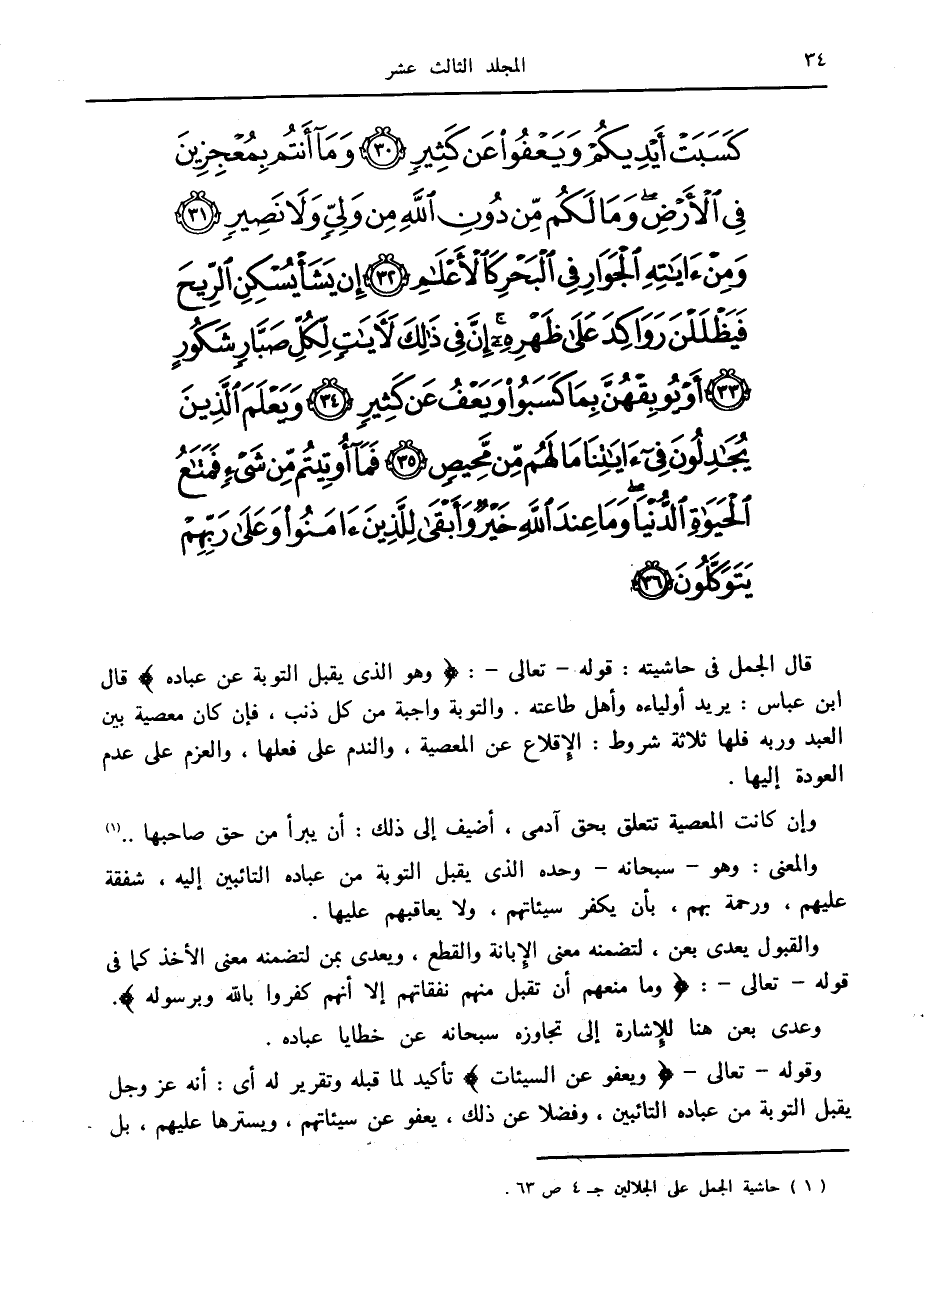 ٣٤
المجلد الثالث عشر
كَسَبَتْ أَيْدِيكُمْ وَيَعْفُوا۟ عَن كَثِيرٍ ﴿٣٠﴾ وَمَآ أَنتُم بِمُعْجِزِينَ
فِى ٱلْأَرْضِ ۖ وَمَا لَكُم مِّن دُونِ ٱللَّهِ مِن وَلِىٍّ وَلَا نَصِيرٍ ﴿٣١﴾
وَمِنْ ءَايَـٰتِهِ ٱلْجَوَارِ فِى ٱلْبَحْرِ كَٱلْأَعْلَـٰمِ ﴿٣٢﴾ إِن يَشَأْ يُسْكِنِ ٱلرِّيحَ
فَيَظْلَلْنَ رَوَاكِدَ عَلَىٰ ظَهْرِهِۦٓ ۚ إِنَّ فِى ذَٰلِكَ لَـَٔايَـٰتٍ لِّكُلِّ صَبَّارٍ شَكُورٍ
﴿٣٣﴾ أَوْ يُوبِقْهُنَّ بِمَا كَسَبُوا۟ وَيَعْفُ عَن كَثِيرٍ ﴿٣٤﴾ وَيَعْلَمَ ٱلَّذِينَ
يُجَـٰدِلُونَ فِىٓ ءَايَـٰتِنَا مَا لَهُم مِّن مَّحِيصٍ ﴿٣٥﴾ فَمَآ أُوتِيتُم مِّن شَىْءٍ فَمَتَـٰعُ
ٱلْحَيَوٰةِ ٱلدُّنْيَا ۖ وَمَا عِندَ ٱللَّهِ خَيْرٌ وَأَبْقَىٰ لِلَّذِينَ ءَامَنُوا۟ وَعَلَىٰ رَبِّهِمْ
يَتَوَكَّلُونَ ﴿٣٦﴾
قال الجمل فى حاشيته : قوله – تعالى – : ﴿ وهو الذى يقبل التوبة عن عباده ﴾ قال
ابن عباس : يريد أولياءه وأهل طاعته . والتوبة واجبة من كل ذنب ، فإن كان معصية بين
العبد وربه فلها ثلاثة شروط : الإقلاع عن المعصية ، والندم على فعلها ، والعزم على عدم
العودة إليها .
وإن كانت المعصية تتعلق بحق آدمى ، أضيف إلى ذلك : أن يبرأ من حق صاحبها ..(١)
والمعنى : وهو – سبحانه – وحده الذى يقبل التوبة من عباده التائبين إليه ، شفقة
عليهم ، ورحمة بهم ، بأن يكفر سيئاتهم ، ولا يعاقبهم عليها .
والقبول يعدى بعن ، لتضمنه معنى الإبانة والقطع ، ويعدى بمن لتضمنه معنى الأخذ كما فى
قوله – تعالى – : ﴿ وما منعهم أن تقبل منهم نفقاتهم إلا أنهم كفروا بالله وبرسوله ﴾.
وعدى بعن هنا للإشارة إلى تجاوزه سبحانه عن خطايا عباده .
وقوله – تعالى – ﴿ ويعفو عن السيئات ﴾ تأكيد لما قبله وتقرير له أى : أنه عز وجل
يقبل التوبة من عباده التائبين ، وفضلا عن ذلك ، يعفو عن سيئاتهم ، ويسترها عليهم ، بل
( ١ ) حاشية الجمل على الجلالين جـ ٤ ص ٦٣ .